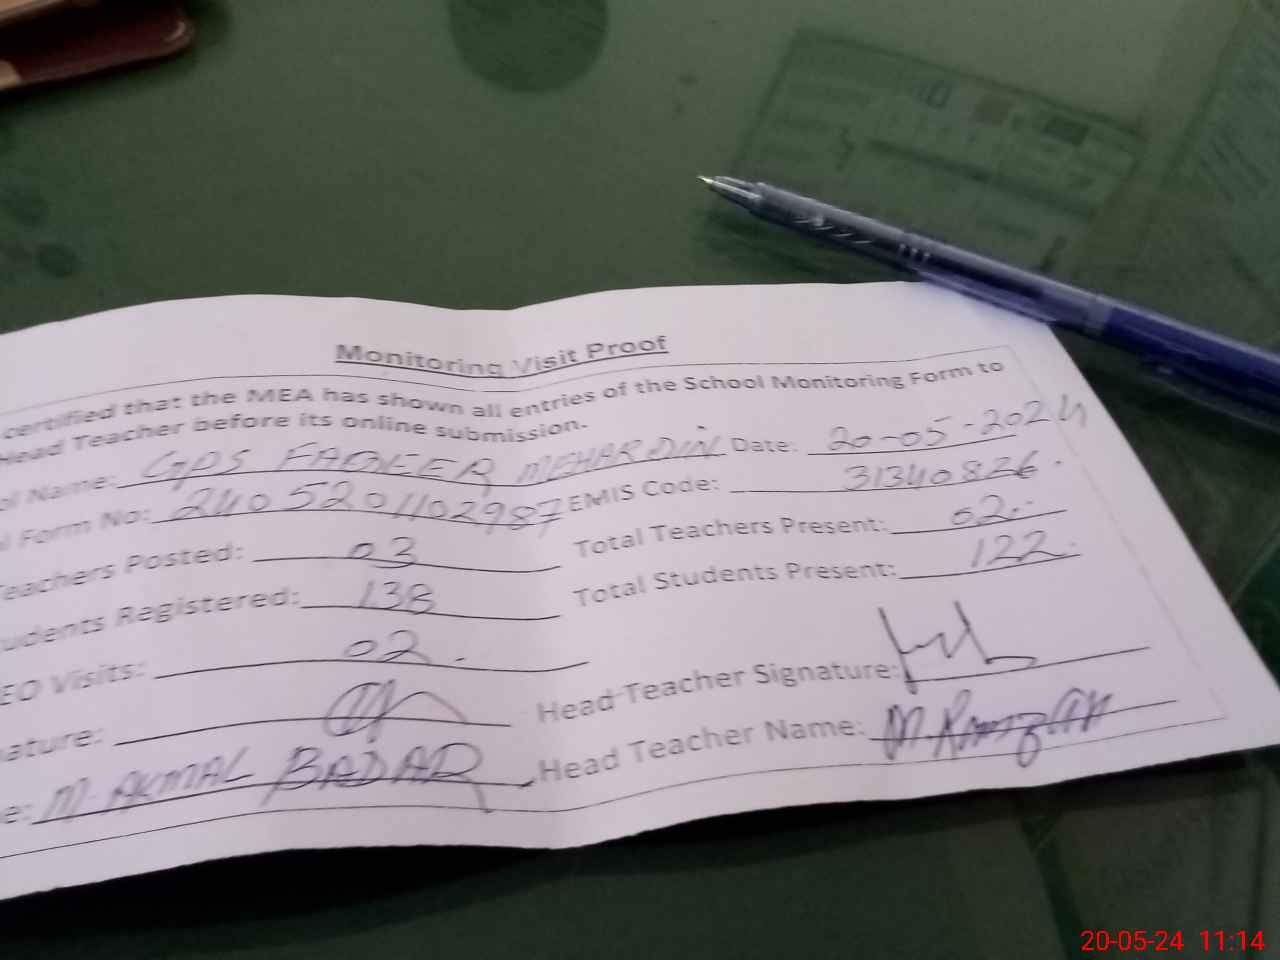 Monitoring Visit Proof
certified that the MEA has shown all entries of the School Monitoring Form to
Head Teacher before its online submission.
ol Name: GPS FAQEER MEHAR DIN Date: 20-05-2024
l Form No: 2405201102987 EMIS Code: 31340826
Teachers Posted: 03 Total Teachers Present: 02
udents Registered: 138 Total Students Present: 122
EO Visits: 02
ature: Head Teacher Signature:
e: M. AKMAL BADAR Head Teacher Name: M. Ramzan
20-05-24 11:14